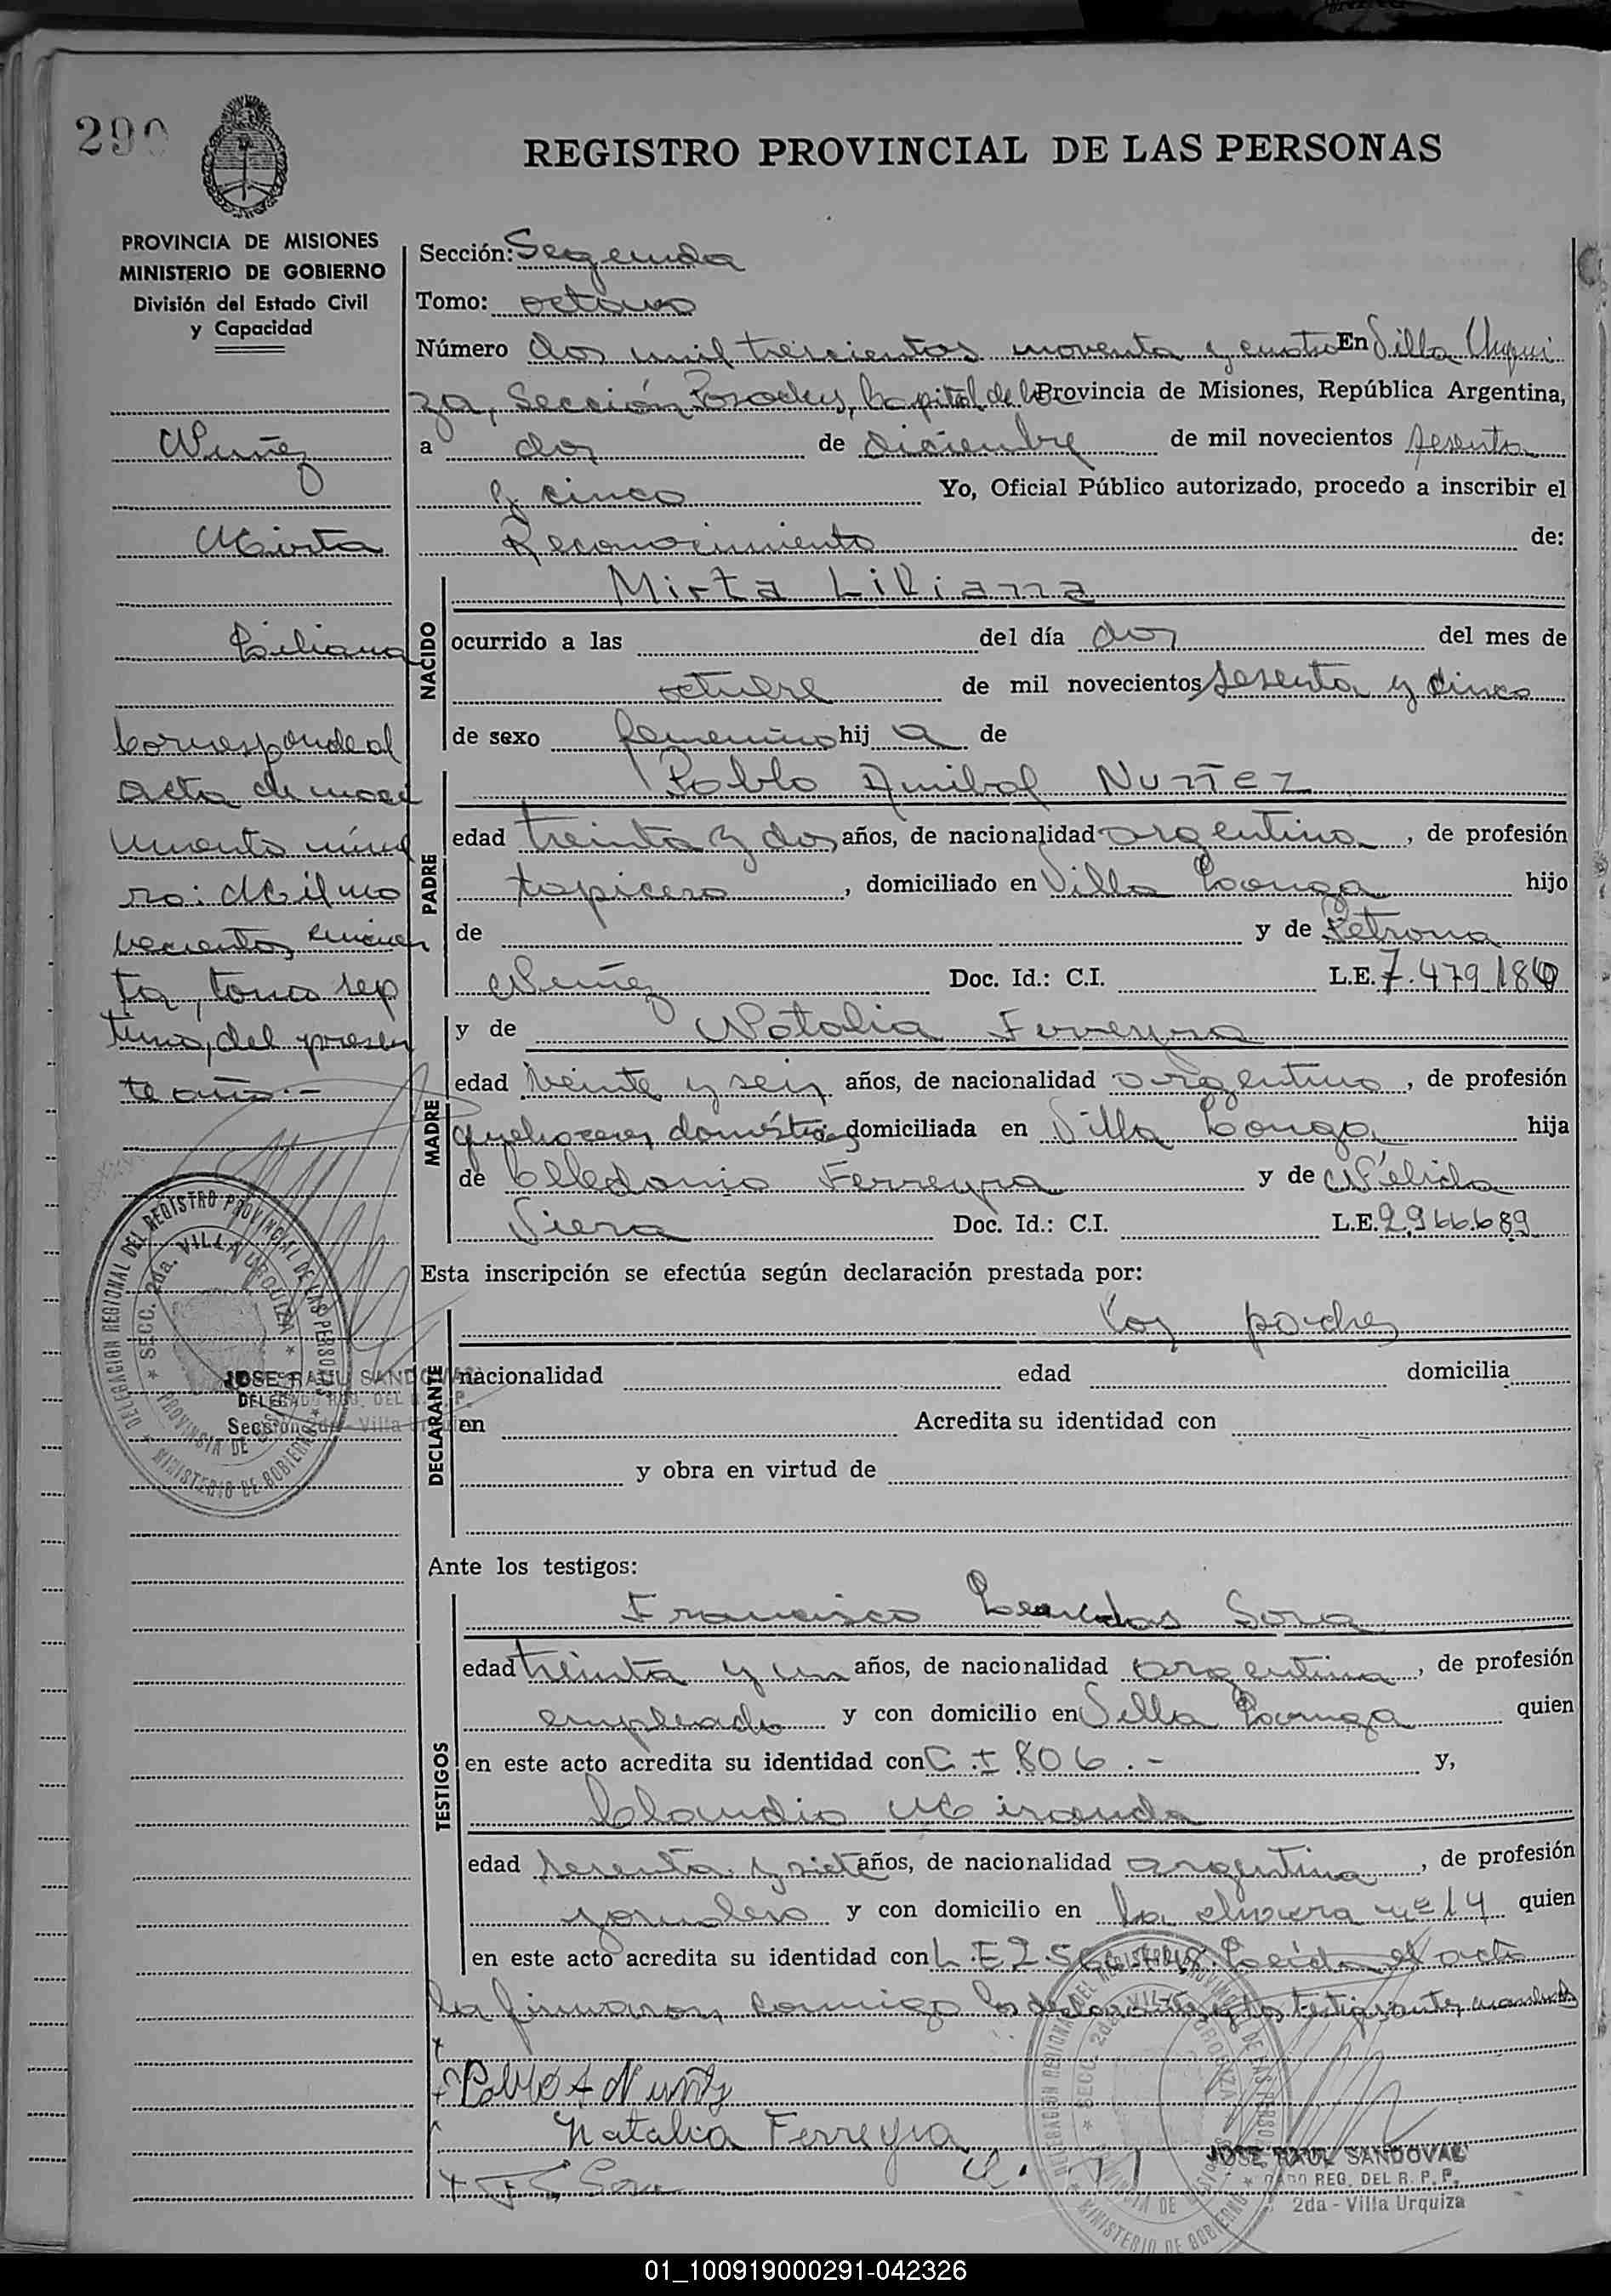 290
REGISTRO PROVINCIAL DE LAS PERSONAS
PROVINCIA DE MISIONES
MINISTERIO DE GOBIERNO
División del Estado Civil
y Capacidad
Nuñez
Mirta
Liliana
Corresponde al
acta de naci
miento núme
ro: Mil no
vecientos cincuen
ta, tomo sep
timo, del presen
te año.-
Sección: Segunda
Tomo: octavo
Número dos mil trescientos noventa y cuatro En Villa Urqui
za, Sección Posadas, Capital de la Provincia de Misiones, República Argentina,
a dos de diciembre de mil novecientos sesenta
y cinco Yo, Oficial Público autorizado, procedo a inscribir el
Reconocimiento de:
NACIDO
Mirta Liliana
ocurrido a las del día dos del mes de
octubre de mil novecientos sesenta y cinco
de sexo femenino hij a de
PADRE
Pablo Anibal Nuñez
edad treinta y dos años, de nacionalidad argentina, de profesión
tapicero, domiciliado en Villa Longa hijo
de y de Petrona
Nuñez Doc. Id.: C.I. L.E. 7.479.180
MADRE
y de Natalia Ferreyra
edad veinte y seis años, de nacionalidad argentina, de profesión
quehaceres domésticos domiciliada en Villa Longa hija
de Celedonio Ferreyra y de Nélida
Viera Doc. Id.: C.I. L.E. 2.966.689
Esta inscripción se efectúa según declaración prestada por:
DECLARANTE
los padres
nacionalidad edad domicilia
en Acredita su identidad con
y obra en virtud de
DELEGACION REGIONAL DEL REGISTRO PROVINCIAL DE LAS PERSONAS
SECC. 2da. VILLA URQUIZA
PROVINCIA DE MISIONES
MINISTERIO DE GOBIERNO
JOSE RAUL SANDOVAL
DELEGADO REG. DEL R. P. P.
Sección 2da - Villa Urquiza
Ante los testigos:
TESTIGOS
Francisco Sosa
edad treinta y un años, de nacionalidad argentina, de profesión
empleado y con domicilio en Villa Longa quien
en este acto acredita su identidad con C.I 806.- y,
Claudio Miranda
edad sesenta y siete años, de nacionalidad argentina, de profesión
jornalero y con domicilio en La chacra nº 14 quien
en este acto acredita su identidad con L.E 2 Leída el acta
la firmaron conmigo los declarantes y los testigos
Pablo A Nuñez
Natalia Ferreyra
F. Sosa
DELEGACION REGIONAL DEL REGISTRO PROVINCIAL DE LAS PERSONAS
SECC. 2da. VILLA URQUIZA
PROVINCIA DE MISIONES
MINISTERIO DE GOBIERNO
JOSE RAUL SANDOVAL
REG. DEL R. P. P.
2da - Villa Urquiza
01_100919000291-042326